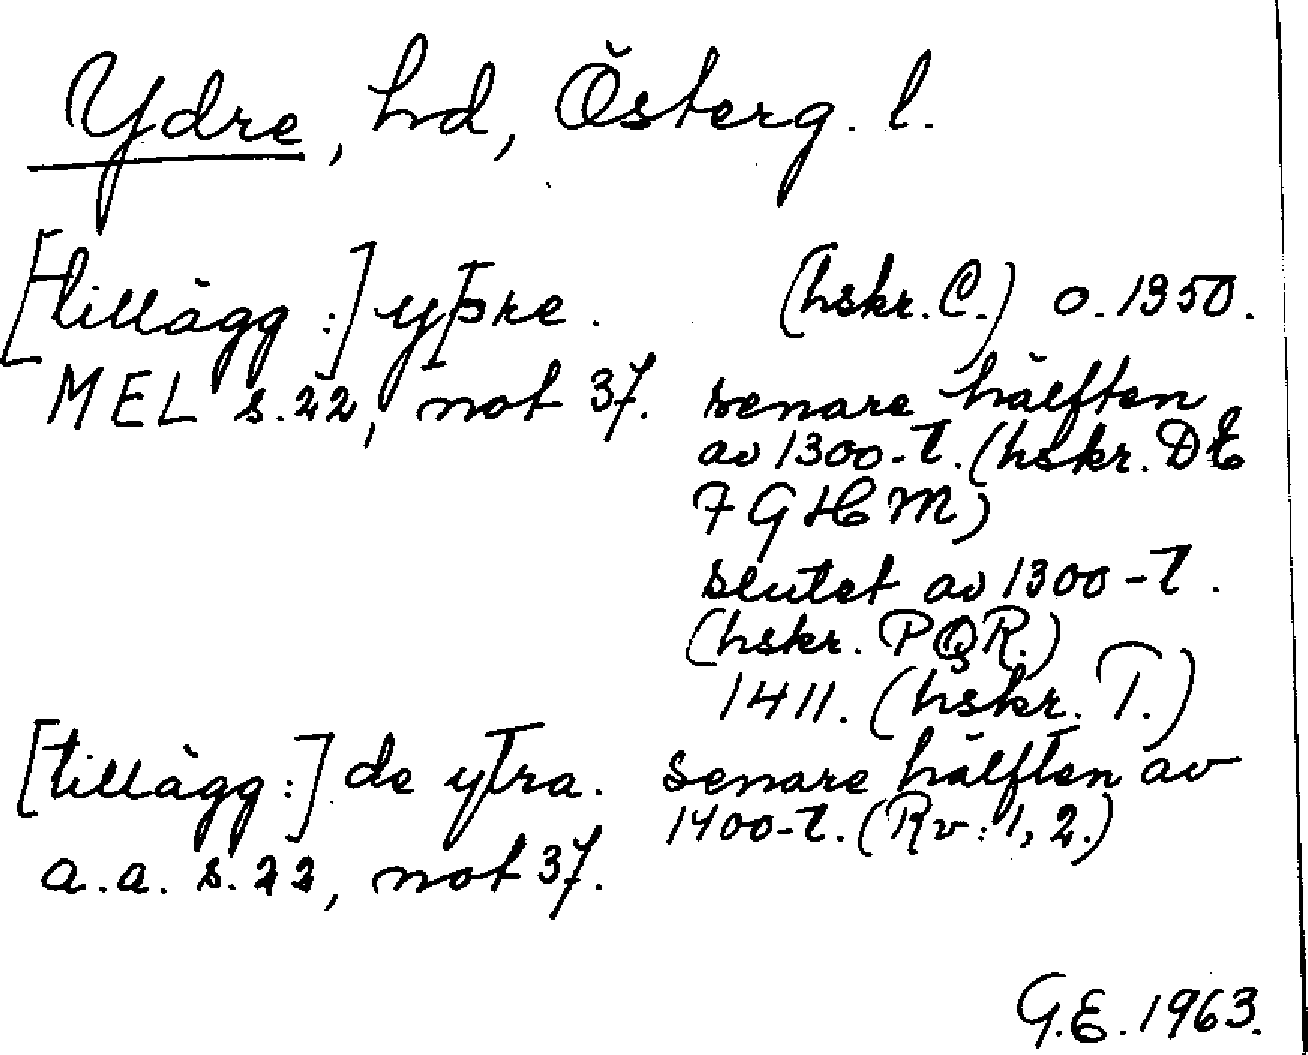 Ydre, hd, Österg. l.
[tillägg:] yþre. (hskr. C.) o. 1350.
MEL s. 22, not 37. senare hälften
av 1300-t. (hskr. D E
F G H M)
slutet av 1300-t.
(hskr. P Q R.)
1411. (hskr. T.)
[tillägg:] de ytra. senare hälften av
1400-t. (Rv: 1, 2.)
a.a. s. 22, not 37.
G.E. 1963.